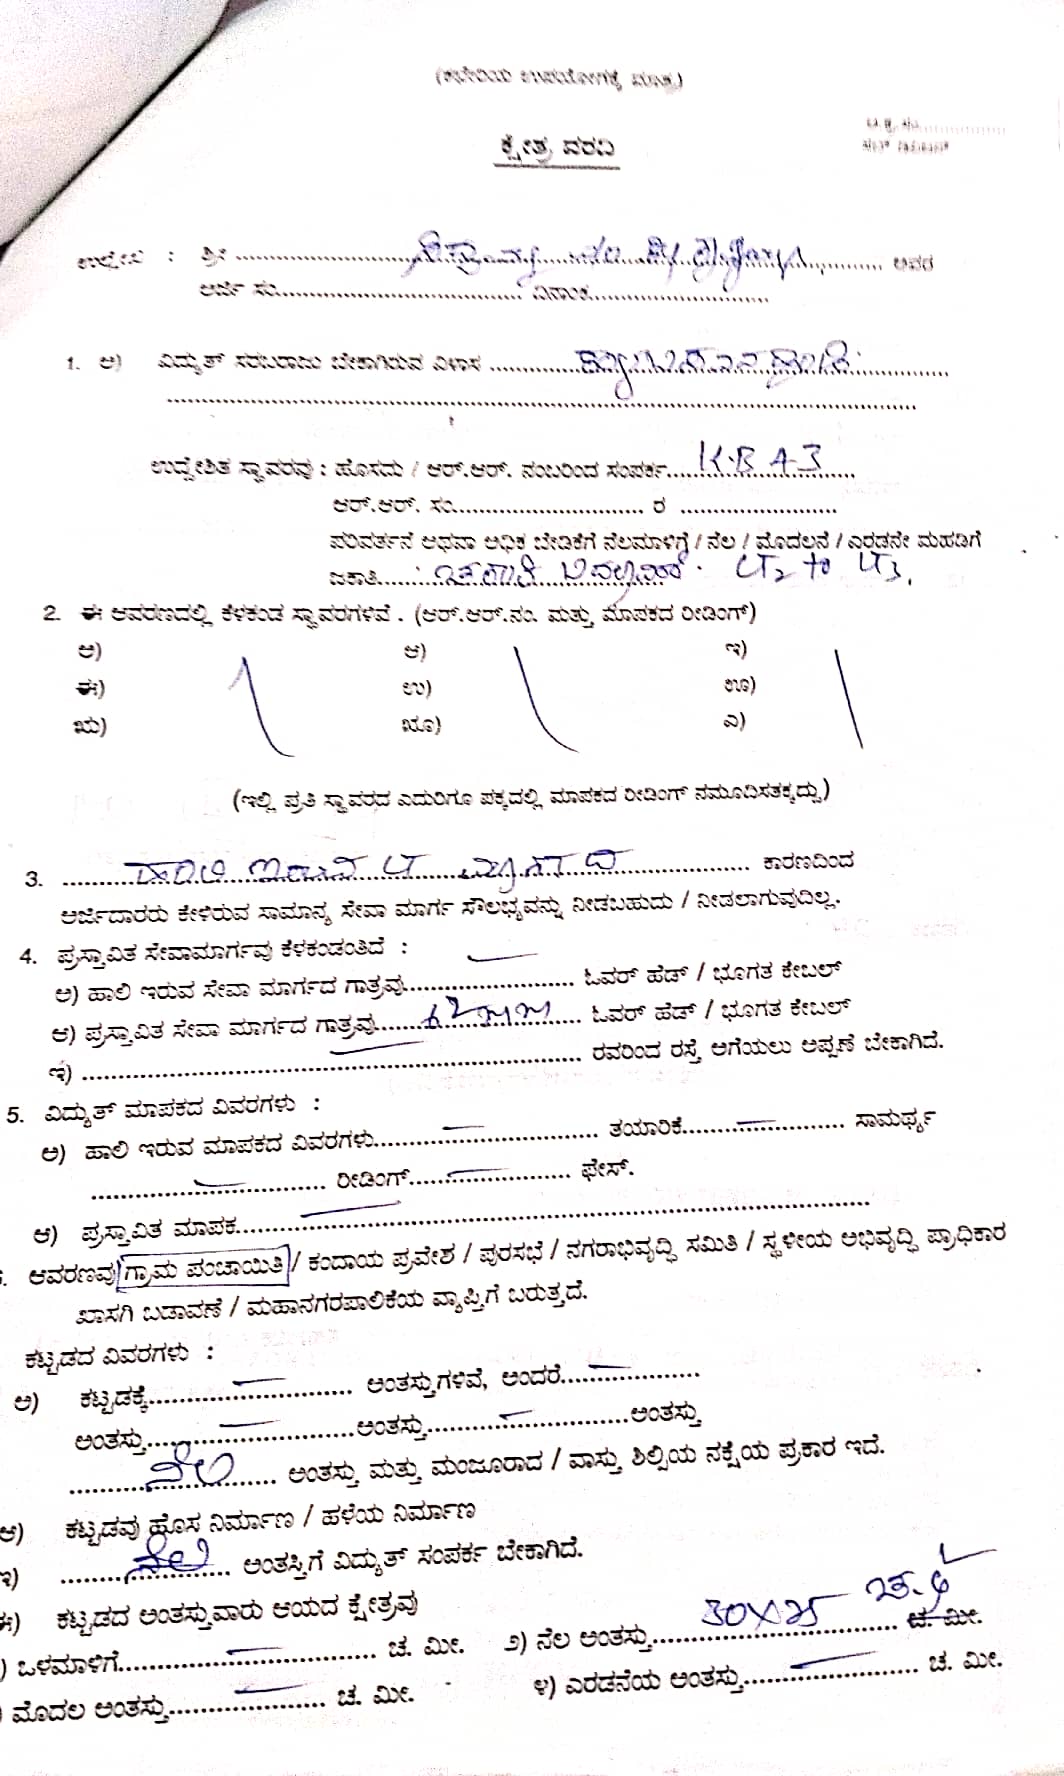 (ಕಛೇರಿಯ ಉಪಯೋಗಕ್ಕೆ ಮಾತ್ರ)
ಕ್ಷೇತ್ರ ವರದಿ
ಉಲ್ಲೇಖ : ಶ್ರೀ .............................. ಅವರ
ಅರ್ಜಿ ಸಂ.............................. ದಿನಾಂಕ..............................
1. ಅ) ವಿದ್ಯುತ್ ಸರಬರಾಜು ಬೇಕಾಗಿರುವ ವಿಳಾಸ ..............................
ಉದ್ದೇಶಿತ ಸ್ಥಾವರವು : ಹೊಸದು / ಆರ್.ಆರ್. ನಂಬರಿಂದ ಸಂಪರ್ಕ...... KB 43
ಆರ್.ಆರ್. ಸಂ.............................. ರ ..............................
ಪರಿವರ್ತನೆ ಅಥವಾ ಅಧಿಕ ಬೇಡಿಕೆಗೆ ನೆಲಮಾಳಿಗೆ / ನೆಲ / ಮೊದಲನೆ / ಎರಡನೇ ಮಹಡಿಗೆ
ಜಕಾತಿ...... LT2 to LT3,
2. ಈ ಆವರಣದಲ್ಲಿ ಕೆಳಕಂಡ ಸ್ಥಾವರಗಳಿವೆ . (ಆರ್.ಆರ್.ನಂ. ಮತ್ತು ಮಾಪಕದ ರೀಡಿಂಗ್)
ಅ) ಆ) ಇ)
ಈ) ಉ) ಊ)
ಋ) ೠ) ಎ)
(ಇಲ್ಲಿ ಪ್ರತಿ ಸ್ಥಾವರದ ಎದುರಿಗೂ ಪಕ್ಕದಲ್ಲಿ ಮಾಪಕದ ರೀಡಿಂಗ್ ನಮೂದಿಸತಕ್ಕದ್ದು)
3. ...... ಹಾಲಿ ಇರುವ LT ...... ಕಾರಣದಿಂದ
ಅರ್ಜಿದಾರರು ಕೇಳಿರುವ ಸಾಮಾನ್ಯ ಸೇವಾ ಮಾರ್ಗ ಸೌಲಭ್ಯವನ್ನು ನೀಡಬಹುದು / ನೀಡಲಾಗುವುದಿಲ್ಲ.
4. ಪ್ರಸ್ತಾವಿತ ಸೇವಾಮಾರ್ಗವು ಕೆಳಕಂಡಂತಿದೆ :
ಅ) ಹಾಲಿ ಇರುವ ಸೇವಾ ಮಾರ್ಗದ ಗಾತ್ರವು.............................. ಓವರ್ ಹೆಡ್ / ಭೂಗತ ಕೇಬಲ್
ಆ) ಪ್ರಸ್ತಾವಿತ ಸೇವಾ ಮಾರ್ಗದ ಗಾತ್ರವು.............................. ಓವರ್ ಹೆಡ್ / ಭೂಗತ ಕೇಬಲ್
ಇ) .............................. ರವರಿಂದ ರಸ್ತೆ ಅಗೆಯಲು ಅಪ್ಪಣೆ ಬೇಕಾಗಿದೆ.
5. ವಿದ್ಯುತ್ ಮಾಪಕದ ವಿವರಗಳು :
ಅ) ಹಾಲಿ ಇರುವ ಮಾಪಕದ ವಿವರಗಳು.............................. ತಯಾರಿಕೆ...................... ಸಾಮರ್ಥ್ಯ
.............................. ರೀಡಿಂಗ್...................... ಫೇಸ್.
ಆ) ಪ್ರಸ್ತಾವಿತ ಮಾಪಕ..............................
. ಆವರಣವು ಗ್ರಾಮ ಪಂಚಾಯಿತಿ / ಕಂದಾಯ ಪ್ರವೇಶ / ಪುರಸಭೆ / ನಗರಾಭಿವೃದ್ಧಿ ಸಮಿತಿ / ಸ್ಥಳೀಯ ಅಭಿವೃದ್ಧಿ ಪ್ರಾಧಿಕಾರ
ಖಾಸಗಿ ಬಡಾವಣೆ / ಮಹಾನಗರಪಾಲಿಕೆಯ ವ್ಯಾಪ್ತಿಗೆ ಬರುತ್ತದೆ.
ಕಟ್ಟಡದ ವಿವರಗಳು :
ಅ) ಕಟ್ಟಡಕ್ಕೆ.............................. ಅಂತಸ್ತುಗಳಿವೆ, ಅಂದರೆ....................
ಅಂತಸ್ತು..............................ಅಂತಸ್ತು..............................ಅಂತಸ್ತು
...... ನೆಲ ...... ಅಂತಸ್ತು ಮತ್ತು ಮಂಜೂರಾದ / ವಾಸ್ತು ಶಿಲ್ಪಿಯ ನಕ್ಷೆಯ ಪ್ರಕಾರ ಇದೆ.
ಆ) ಕಟ್ಟಡವು ಹೊಸ ನಿರ್ಮಾಣ / ಹಳೆಯ ನಿರ್ಮಾಣ
ಇ) ...... ನೆಲ ...... ಅಂತಸ್ತಿಗೆ ವಿದ್ಯುತ್ ಸಂಪರ್ಕ ಬೇಕಾಗಿದೆ.
ಈ) ಕಟ್ಟಡದ ಅಂತಸ್ತುವಾರು ಆಯದ ಕ್ಷೇತ್ರವು
) ಒಳಮಾಳಿಗೆ.............................. ಚ. ಮೀ. ೨) ನೆಲ ಅಂತಸ್ತು...... 30X25 ಚ.ಅ ಚ. ಮೀ.
) ಮೊದಲ ಅಂತಸ್ತು...................... ಚ. ಮೀ. ೪) ಎರಡನೆಯ ಅಂತಸ್ತು...................... ಚ. ಮೀ.